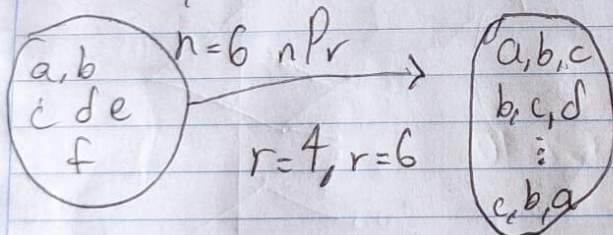 a, b
c d e
f
n=6 nPr
r=4, r=6
a, b, c
b, c, d
⋮
c, b, a